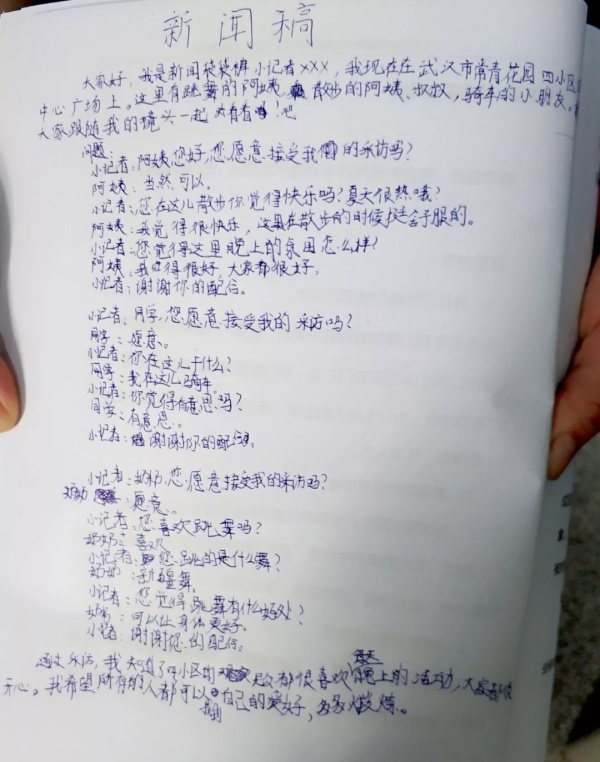 新闻稿
大家好,我是新闻袋袋裤小记者xxx,我现在在武汉市常青花园四小区
中心广场上。这里有跳舞的阿姨,散步的阿姨、叔叔,骑车的小朋友。
大家跟随我的镜头一起去看看吧!
问题:
小记者:阿姨,您好,您愿意接受我的采访吗?
阿姨:当然可以。
小记者:您在这儿散步你觉得快乐吗?夏天很热哦?
阿姨:我觉得很快乐,这里在散步的时候挺舒服的。
小记者:您觉得这里晚上的氛围怎么样?
阿姨:我觉得很好,大家都很好。
小记者:谢谢你的配信。
小记者:同学,您愿意接受我的采访吗?
同学:愿意。
小记者:你在这儿干什么?
同学:我在这儿骑车。
小记者:你觉得有意思吗?
同学:有意思。
小记者:谢谢你的配信。
小记者:奶奶,您愿意接受我的采访吗?
奶奶:愿意。
小记者:您喜欢跳舞吗?
奶奶:喜欢
小记者:您跳的是什么舞?
奶奶:新疆舞。
小记者:您觉得跳舞有什么好处?
奶奶:可以让身体更好。
小记者:谢谢您的配信。
通过采访,我知道了中小区的都很喜欢夏天晚上的活动,大家都很
开心。我希望所有的人都可以自己的爱好,多多锻炼。